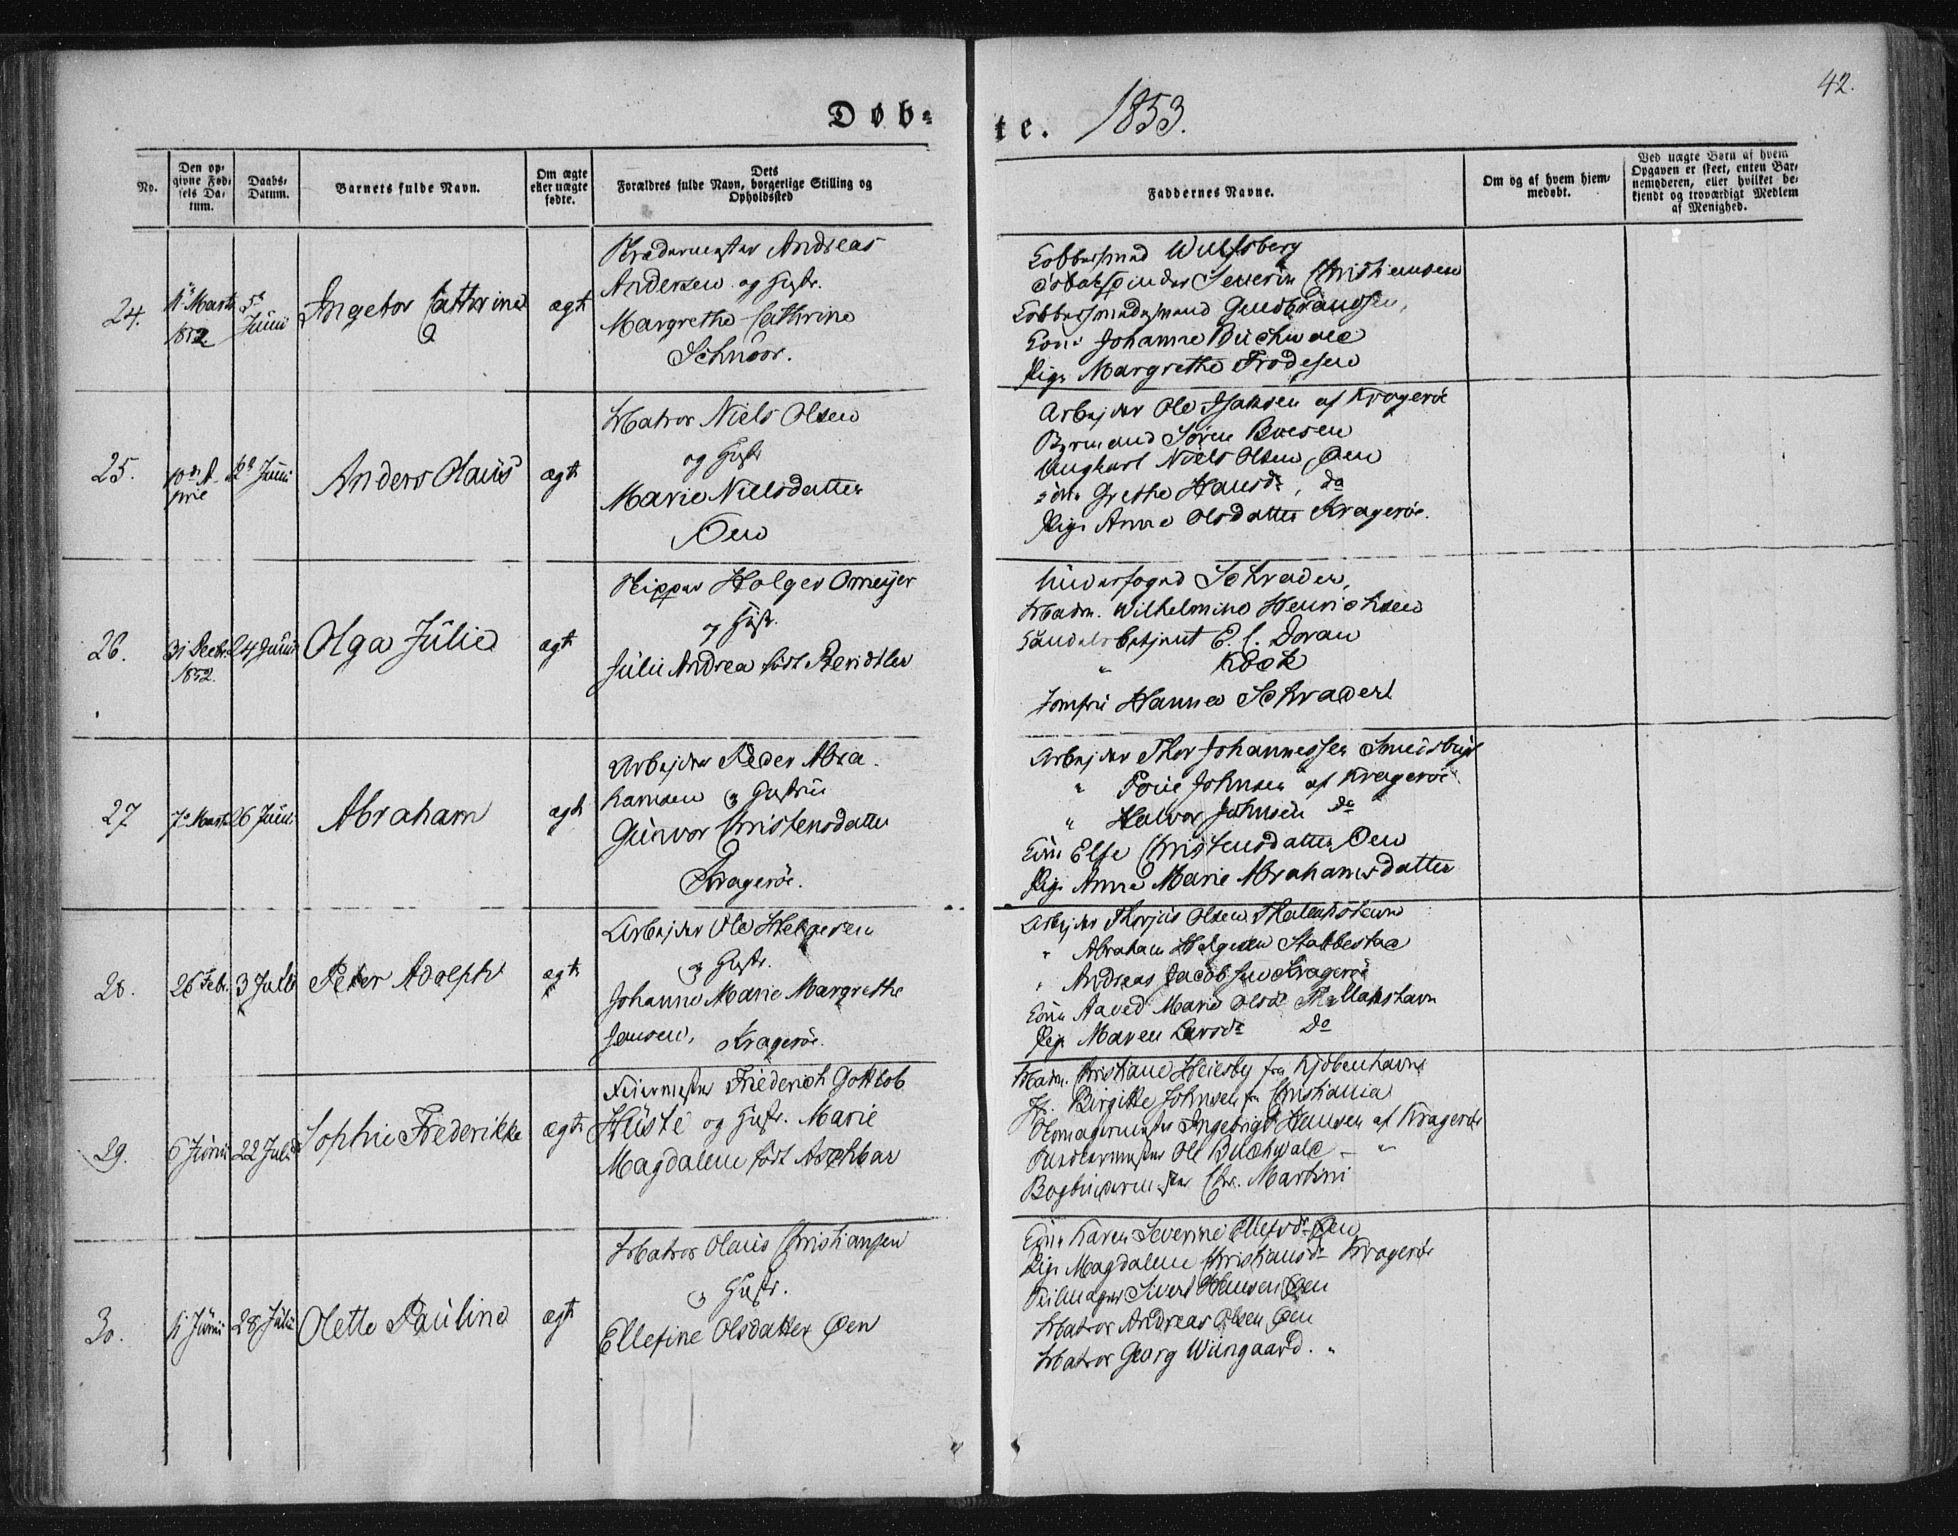 42.
Døb-
te. 1853.
No.
Den opgivne Fødsels Datum.
Daabs-Datum.
Barnets fulde Navn.
Om ægte eller uægte fødte.
Dets Forældres fulde Navn, borgerlige Stilling og Opholdssted
Faddernes Navne.
Om og af hvem hjemmedøbt.
Ved uægte Børn af hvem Opgaven er skeet, enten Barnemoderen, eller hvilket bekjendt og troværdigt Medlem af Menighed.
24.
Marts
1852
5te
Juni
Ingebor Cathrine
ægte
Andreas
Andersen og Hustr.
Margrethe Cathrine
Schnoor.
Kobbersmed Wulfsberg
Tobakspinder Severin Christiansen
Kobbersmedsvend Gudbrandsen,
Kone Johanne Buchwald
Pige Margrethe Frodesen
25.
10de A-
pril
12te Juni
Anders Olaus
ægte
Matros Niels Olsen
og Hustr
Marie Nielsdatter
Øen
Arbejder Ole Isaksen af Kragerøe
Bymand Søren Boesen
Ungkarl Niels Olsen, Øen
Kone Grethe Hansdr, do
Pige Anne Olsdatter Kragerøe.
26.
31 Decbr.
1852.
24 Juni
Olga Júlie
ægte
Skipper Holger Omejer
og Hustr.
Julie Andrea født Rendtler
Underfoged Schrader,
Madm. Wilhelmine Henrichsen
Handelsbetjent E. C. Dovan
" Koch
Jomfru Hanna Schrader
27
7de Marts
26 Juni
Abraham
ægte
Arbejder Peder Abra-
hamsen og Hustru
Gunvor Christensdatter
Kragerøe.
Arbejder Thor Johannessen Smedsbugt
" Poul Johnsen af Kragerøe
" Halvor Johnsen do
Kone Else Christensdatter Øen
Pige Anne Marie Abrahamsdatter
28.
26 Febr.
3 Juli
Peter Adolph
ægte
Arbejder Ole Helgesen
og Hustr.
Johanne Marie Margrethe
Jensen, Kragerøe.
Arbejder Thorjus Olsen
" Abraham Helgesen Stabbestad
" Andreas Jacobsen Kragerøe
Kone Aaved Marie Olsdr
Pige Maren Larsdr do
29.
6 Juni
22 Juli
Sophie Frederikke
ægte
Feiermester Friederich Gottlob
Huste og Hustr. Marie
Magdalene født Aschbar
Madm. Christiane Heiesby fra Kjøbenhavn
Jf. Birgitte Johnsen fra Christiania
Skomagermester Ingebrigt Hansen af Kragerøe
Ole Buchwald - "
Bogbindermester Chr. Martini
30.
11 Juni
28 Juli
Olette Pauline
ægte
Matros Olaus Christiansen
og Hustr.
Ellefine Olsdatter Øen
Kone Karen Severine Ellefsdr Øen
Pige Magdalene Christiansdr Kragerøe
Seilmager Sivert Hansen Øen
Matros Andreas Olsen Øen
Matros Georg Wiingaard. "